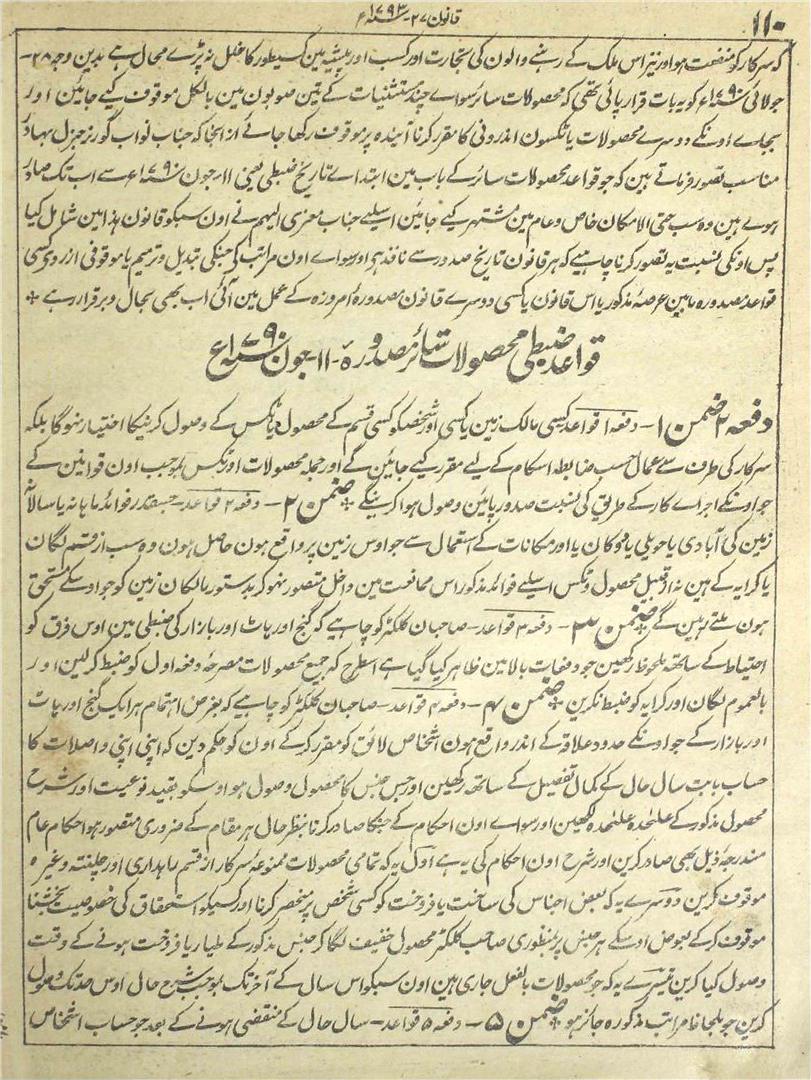 قانون ۲۷ ۱۷۹۳ء
۱۱۰
کہ سرکار کو منفعت ہو اور نیز اس ملک کے رہنے والون کی تجارت اور کسب اور پیشہ مین کسیطور کا خلل نہ پڑے محال ہے بدین وجہ ۲۸-
جولائی ۱۷۹۰ء کو یہ بات قرار پائی تھی کہ محصولات سائر سواے چند مستثنیات کے تین صوبون مین بالکل موقوف کیے جائین اور
بجاے اونکے دوسرے محصولات یا ٹکسون اندرونی کا مقرر کرنا آیندہ پر موقوف رکھا جائے از انجا کہ جناب نواب گورنر جنرل بہادر
مناسب تصور فرماتے ہین کہ جو قواعد محصولات سائر کے باب مین ابتداے تاریخ ضبطی یعنی ۱۱- جون ۱۷۹۰ء سے اب تک صادر
ہوے ہین وہ سب حتی الامکان خاص و عام مین مشتہر کیے جائین اسلیے جناب معزی الیہم نے اون سبکو قانون ہذا مین شامل کیا
پس اونکی نسبت یہ تصور کرنا چاہیے کہ ہر قانون تاریخ صدور سے نافذ ہی اور سواے اون مراتب کی جنکی تبدیل و ترمیم یا موقوفی ازروی کسی
قواعد مصدورہ مابین عرصۂ مذکور یا اس قانون یا کسی دوسرے قانون مصدورۂ امروزہ کے عمل مین آئی اب بھی بحال و برقرار رہے *
قواعد ضبطی محصولات سائر مصدورہ ۱۱- جون ۱۷۹۰ء
دفعہ ۲ ضمن ۱- دفعہ ۱ قواعد کیسی مالک زمین یا کسی اور شخصکو کسی قسم کے محصول یا ٹکس کے وصول کرنیکا اختیار نہوگا بلکہ
سرکار کی طرف سے عمال حسب ضابطہ اسکام کے لیے مقرر کیے جائین گے اور جملہ محصولات اور ٹکس بموجب اون قوانین کے
جو اونکے اجراے کار کے طریق کی نسبت صدور پائین وصول ہوا کرینگے * ضمن ۲- دفعہ ۲ قواعد- جسقدر فوائد ماہانہ یا سالانہ
زمین کی آبادی یا حویلی یا دوکان یا اور مکانات کے استعمال سے جو اوس زمین پر واقع ہون حاصل ہون وہ سب از قسم لگان
یا کرایہ کے ہین نہ از قبیل محصول و ٹکس اسلیے فوائد مذکور اس ممانعت مین داخل متصور نہوکر بدستور مالکان زمین کو جو اوسکے مستحق
ہون ملتے رہین گے * ضمن ۳- دفعہ ۳ قواعد- صاحبان کلکٹر کو چاہیے کہ گنج اور ہاٹ اور بازار کی ضبطی مین اوس فرق کو
احتیاط کے ساتھ ملحوظ رکھین جو دفعات بالا مین ظاہر کیا گیا ہے اسطرح کہ جمیع محصولات مصرحۂ دفعہ اول کو ضبط کرلین اور
بالعموم لگان اور کرایہ کو ضبط نکرین * ضمن ۴- دفعہ ۴ قواعد- صاحبان کلکٹر کو چاہیے کہ بغرض اہتمام ہر ایک گنج اور ہاٹ
اور بازار کے جو اونکے حدود علاقہ کے اندر واقع ہون اشخاص لائق کو مقرر کرکے اون کو حکم دین کہ اپنی اپنی واصلات کا
حساب بابت سال حال کے کمال تفصیل کے ساتھ رکھین اور جس جنس کا محصول وصول ہو اوسکو بقید نوعیت اور شرح
محصول مذکور کے علٰحدہ علٰحدہ لکھین اور سواے اون احکام کے جنکا صادر کرنا بنظر حال ہر مقام کے ضروری متصور ہو احکام عام
مندرجۂ ذیل بھی صادر کرین اور شرح اون احکام کی یہ ہے اول یہ کہ تمامی محصولات ممنوعۂ سرکار از قسم راہداری اور چلنتہ وغیرہ
موقوف کرین دوسرے یہ کہ بعض اجناس کی ساخت یا فروخت کو کسی شخص پر منحصر کرنا اور کسیکو استحقاق کی خصوصیت بخشنا
موقوف کرکے بعوض اوسکے ہر جنس پر بمنظوری صاحب کلکٹر محصول خفیف لگا کر جنس مذکور کے طیار یا فروخت ہونے کے وقت
وصول کیا کرین تیسرے یہ کہ جو محصولات بالفعل جاری ہین اون سبکو اس سال کے آخر تک بموجب شرح حال اوس حد تک وصول
کرین جو بلحاظ مراتب مذکورہ جائز ہو * ضمن ۵- دفعہ ۵ قواعد- سال حال کے منقضی ہونے کے بعد جو حساب اشخاص